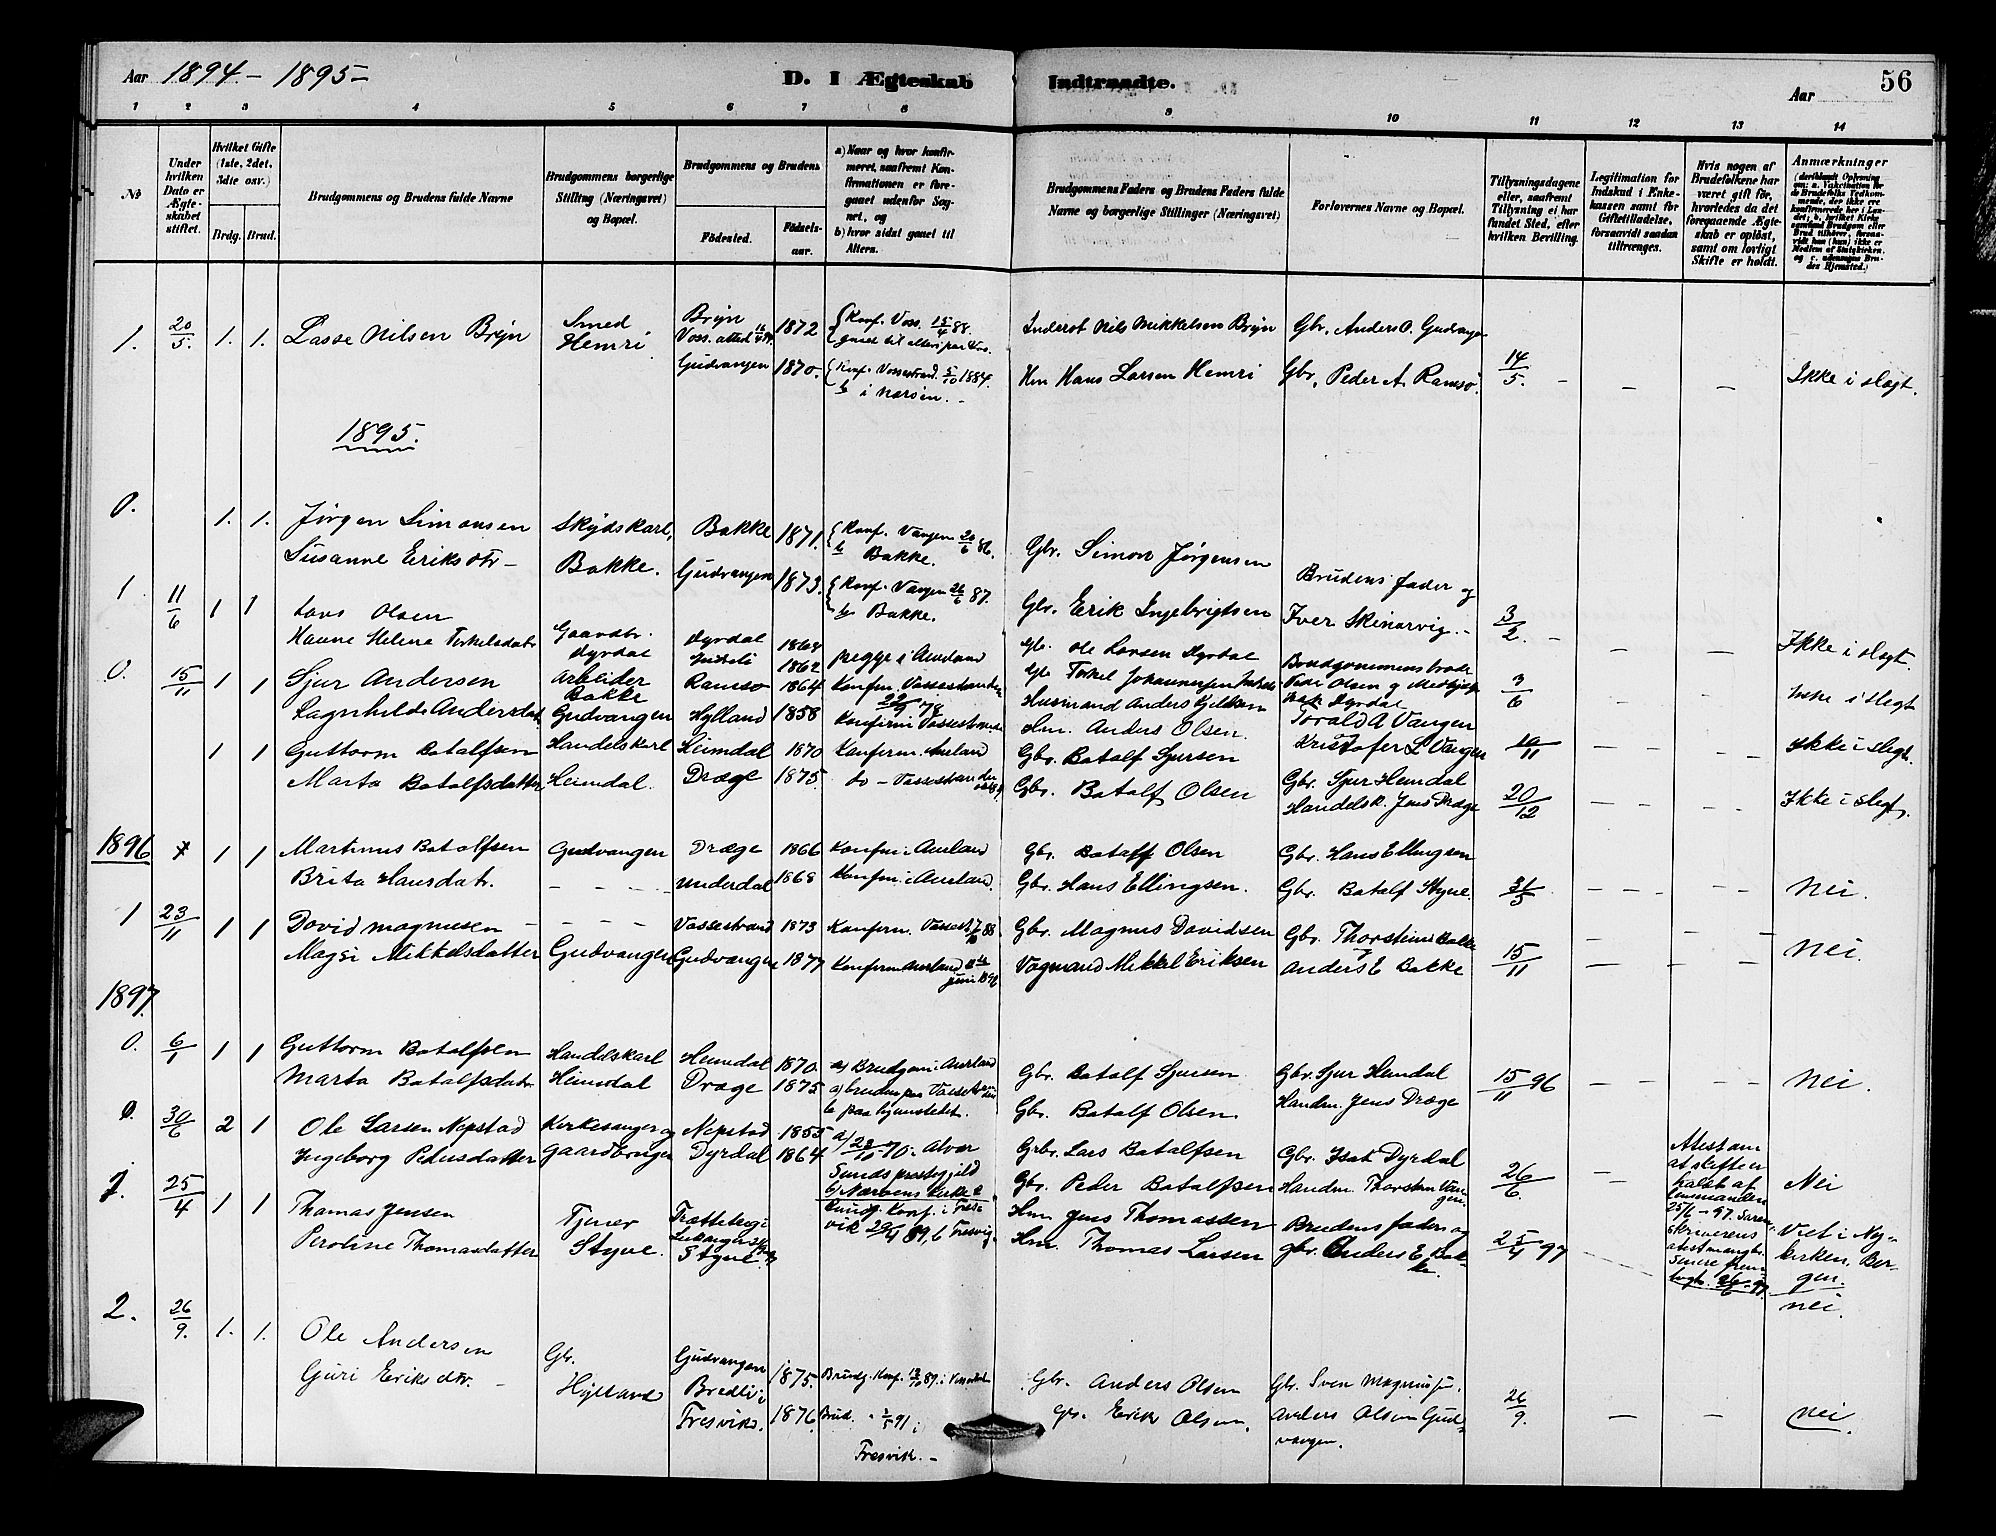 Aar 1894 - 1895 -
D. I Ægteskab Indtraadte.
Aar
56
1 2 3 4 5 6 7 8 9 10 11 12 13 14
No
Under hvilken Dato er Ægteskabet stiftet.
Hvilket Gifte (1ste, 2det, 3die osv.)
Brdg. Brud.
Brudgommens og Brudens fulde Navne
Brudgommens borgerlige Stilling (Næringsvei) og Bopæl.
Brudgommens og Brudens
Fødested. Fødsels-aar.
a) Naar og hvor konfirmeret, saafremt Konfirmationen er foregaaet udenfor Sognet, og
b) hvor sidst gaaet til Alters.
Brudgommens Faders og Brudens Faders fulde Navne og borgerlige Stillinger (Næringsvei)
Forlovernes Navne og Bopæl.
Tillysningsdagene eller, saafremt Tillysning ei har fundet Sted, efter hvilken Bevilling.
Legitimation for Indskud i Enkekassen samt for Giftetilladelse, forsaavidt saadan tiltrænges.
Hvis nogen af Brudefolkene har været gift før, hvorledes da det foregaaende Ægteskab er opløst, samt om lovligt Skifte er holdt.
Anmærkninger
1. 20/5. 1. 1. Lasse Nilsen Brÿn Smed Hemri. Brÿn Voss. 1872 Konf. Voss. 15/4 88. Inderst Nils Mikkelsen Brÿn Gbr. Anders O. Gudvangen
Gudvangen 1870. Konf. Vossestrand. 5/10 1884. b i Nærøen. - Hm Hans Larsen Hemri Gbr. Peder A. Ramsø. 14/5. - - - Ikke i slægt.
1895.
0. 1. 1. Jørgen Simonsen Skÿdskarl, Bakke 1871. Konf. Vangen 20/6 86. b Bakke. Gbr. Simon Jørgensen
Susanne Eriksdtr - Bakke. Gudvangen 1873. Konf. Vangen 26/6 87. b Bakke. Gbr. Erik Ingebrigtsen Brudens fader og Iver Skinarvig. - 3/2. - - - Ikke i slægt.
1 11/6 1 1 Lars Olsen Gaardbr. Dyrdal 1868 Gb. Ole Larsen Dyrdal
Hanne Helene Terkelsdatr Dyrdal 1862 begge i Aurland Brudgommens
0. 15/11 1 1 Sjur Andersen Arbeider Bakke Ramsø 1864 Konfirm. Vossestranden Husmand Anders 3/6 - Ikke i slegt
Ragnhilde Andersdat. Gudvangen Hylland 1858 Konfirm. Vossestranden Hm. Anders Olsen. Torald A Vangen
Kristofer L Vangen 10/11 - - - Ikke i slegt.
1 1 Guttorm Botolfsen Handelskarl Heimdal 1870 Konferm. Aurland Gbr. Botolf Sjursen Gbr. Sjur Heimdal
Marta Botolfsdatter Heimdal. Dræge 1875. do - Vossestranden Gbr. Botolf Olsen Handelsk. Jens Dræge 20/12 - - - Ikke i slegt.
1896 1 1 Martinus Botolfsen Gudvangen Dræge 1866 Konfm i Aurland Gbr. Botolf Olsen Gbr. Hans Ellingsen
Brita Hansdatr. - - - - Underdal 1868 Konfm. i Aurland. Gbr. Hans Ellingsen. Gbr. Botolf Styve. 31/5 - - - Nei.
1 23/11 1 1 David Magnusen - - - - Vossestrand 1873 Konferm. Vossest 7/10 88 Gbr. Magnus Davidsen Gbr. Thorstein Bakke
Magsi Mikkelsdatter Gudvangen Gudvangen 1877 Konferm Aurland Vogmand Mikkel Eriksen Anders E Bakke 15/11 - - - Nei.
1897.
0. 6/1 1 1 Guttorm Botolfsen Handelskarl Heimdal 1870. a) Brudgom i Aurland Gbr. Botolf Sjursen Gbr. Sjur Heimdal
Marta Botolfsdatr Heimdal Dræge 1875 a) bruden paa Vossestranden b paa hjemstedet. Gbr. Botolf Olsen Handm. Jens Dræge 15/11 96 - - - Nei.
0. 30/6 2 1 Ole Larsen Nepstad Kirkesanger og Nepstad 1855 a) 23/10 70. Alver Sunds prestegjeld Grbr. Lars Botolfsen Gbr. Isak Dyrdal
Ingeborg Pedersdatter Gaardbruger Dyrdal 1864 b) Nærøens Kirke Gbr. Peder Botolfsen Handm. Thorstein Vangen. 26/6. - Attest om at skifte er holdt af 25/6 - 97. Senere frem lagt. 26/6 - 97. Nei
1. 25/4 1 1 Thomas Jensen Tjener Trætteberg i Leikanger Konf. i Fresvik 29/4 89, b Fresvig Hm Jens Thomassen Brudens fader og
Peroline Thomasdatter Styve. Styve. Hm. Thomas Larsen gbr. Anders E. Bakke. 25/4 97 - Viet i Nykirken, Bergen.
nei.
2. 26/9. 1. 1. Ole Andersen Gbr. Gudvangen 1875. Brudg. Konf. 13/10 89. i Gbr. Anders Olsen Gbr. Sven Magnussen.
Guri Eriksdtr. - Hÿlland Bredli i Fresvik. 1876. Brud. " 3/5 91 i Fresvik. - Gbr. Erik Olsen. Anders Olsen Gudvangen. 26/9. - - nei.